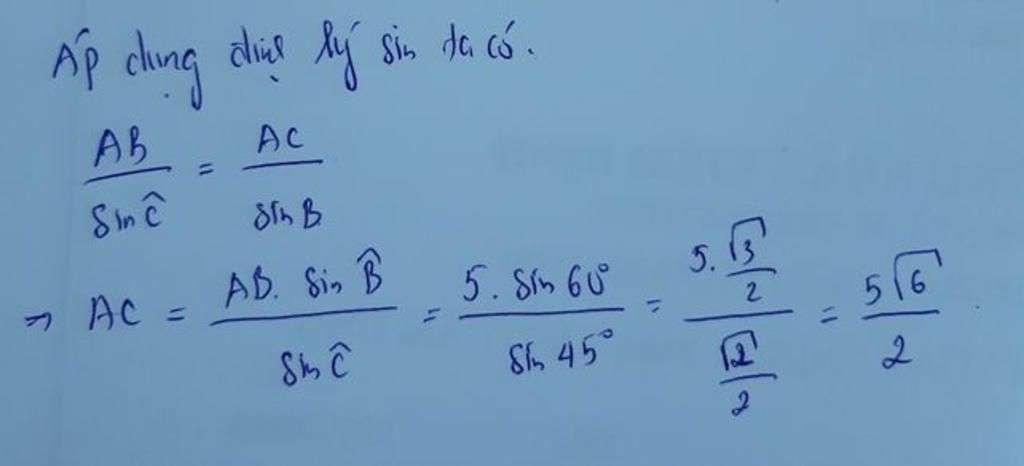 Áp dụng định lý sin ta có.
AB/sin Ĉ = AC/sin B
⇒ AC = AB. sin B̂/sin Ĉ = 5. sin 60°/sin 45° = (5. √3/2)/(√2/2) = 5√6/2.